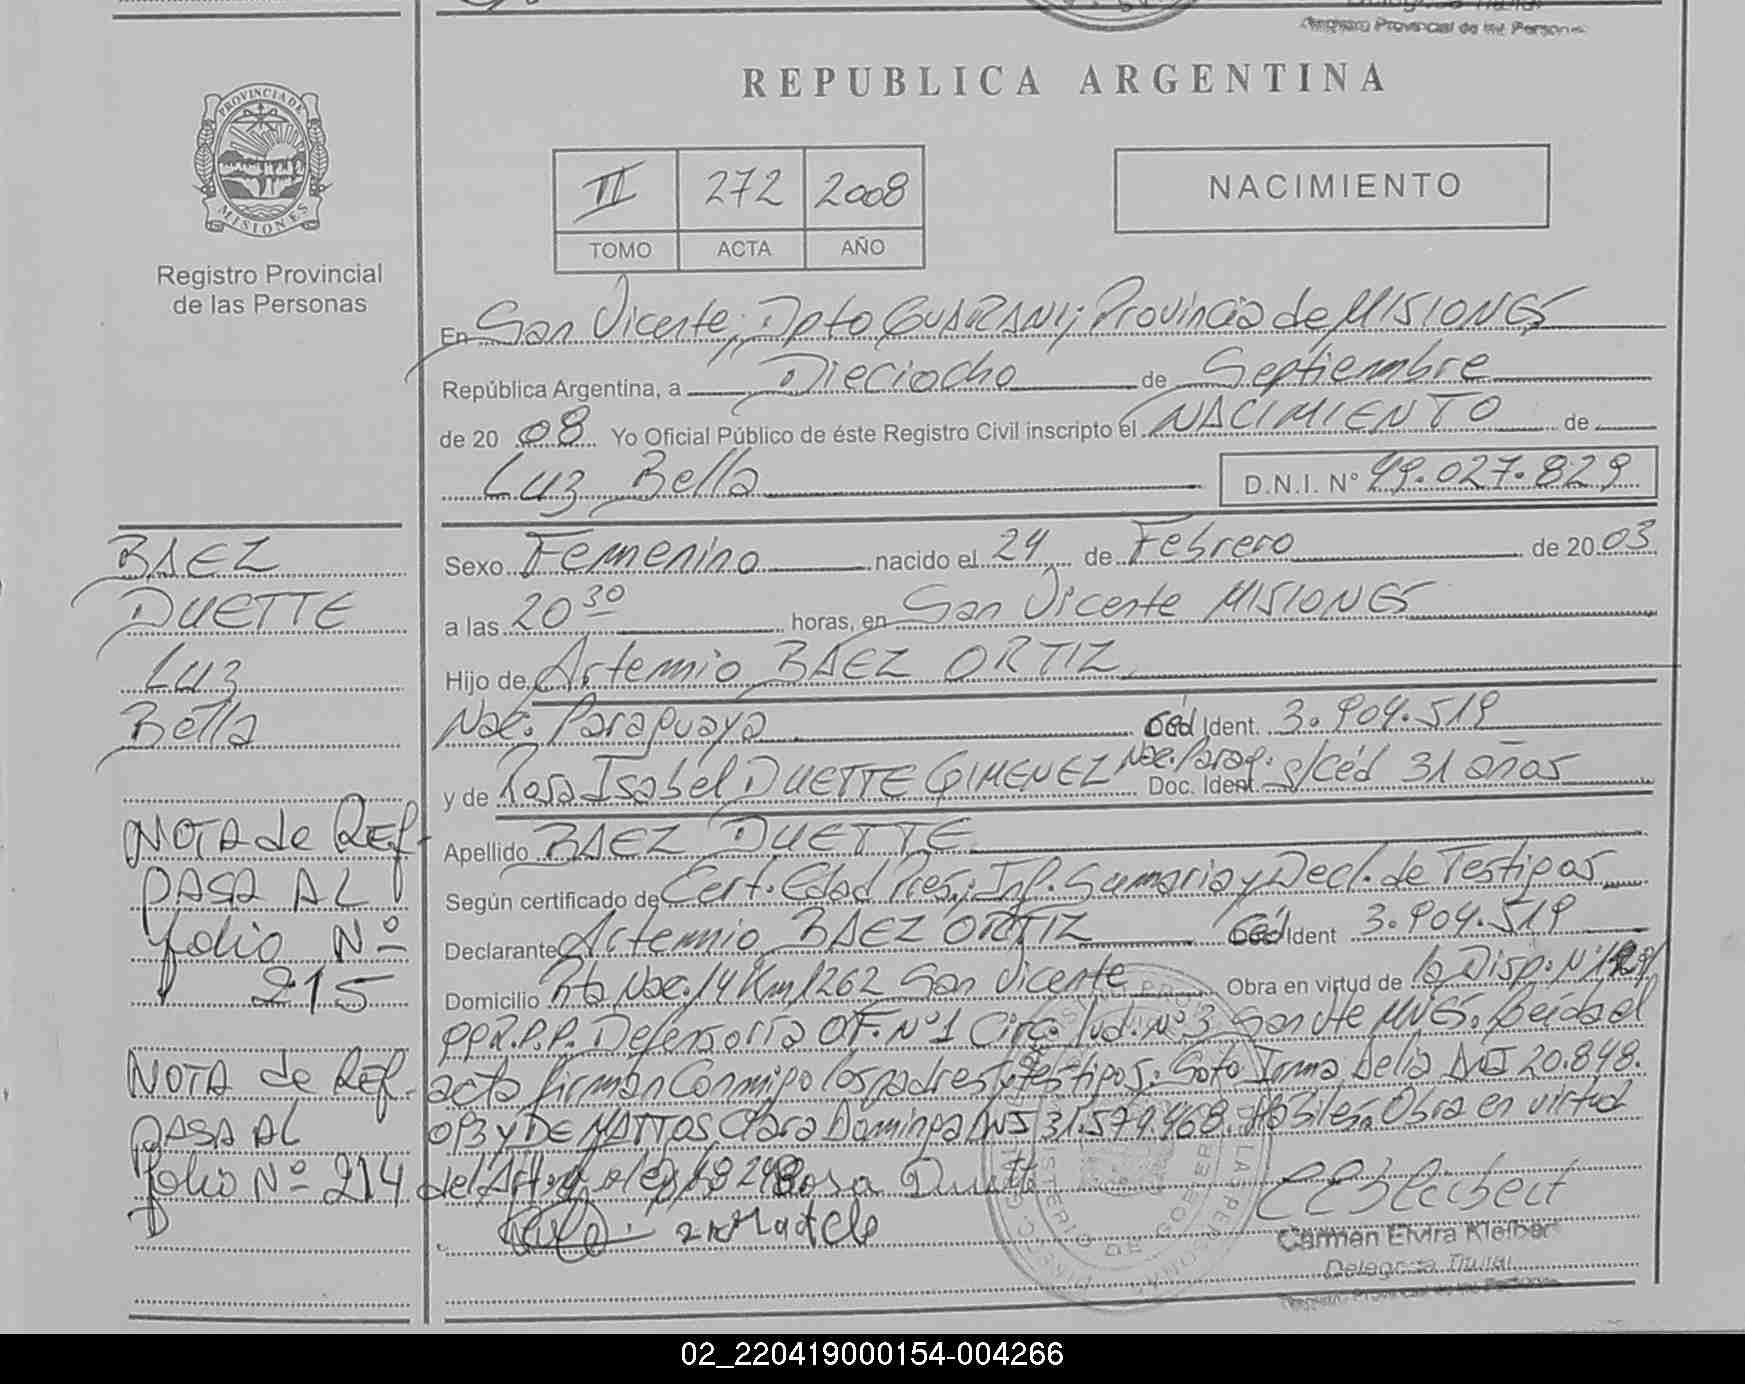 Registro Provincial de las Personas
REPUBLICA ARGENTINA
PROVINCIA DE
MISIONES
Registro Provincial
de las Personas
II 272 2008
TOMO ACTA AÑO
NACIMIENTO
En San Vicente; Dpto GUARANI; Provincia de MISIONES
República Argentina, a Dieciocho de Septiembre
de 20 08 Yo Oficial Público de éste Registro Civil inscripto el NACIMIENTO de
Luz Bella D.N.I. N° 49.027.829
Sexo Femenino nacido el 24 de Febrero de 20 03
a las 20 30 horas, en San Vicente MISIONES
Hijo de Artemio BAEZ ORTIZ
Nac. Paraguaya Céd Ident. 3.904.519
y de Rosa Isabel DUETTE GIMENEZ Nac. Parag. Doc. Ident. s/céd 31 años
Apellido BAEZ DUETTE
Según certificado de Cert. Edad Pres.; Inf. Sumaria y Decl. de Testigos
Declarante Artemio BAEZ ORTIZ Céd Ident 3.904.519
Domicilio Rta Nac. 14 Km 1262 San Vicente Obra en virtud de la Disp. N°
PP.R.P.P. Defensoría OF. N°1 Circ. Jud. N°3 San Vte MNES. Leída el
acta firman conmigo los padres y testigos: Soto Irma Delia DNI 20.848.
093 y DE MATTOS Clara Dominga DNI 31.579.468. Hábiles. Obra en virtud
del Rosa Duette
Carmen Elvira Kleiber
Delegada Titular
Registro Provincial de las Personas
BAEZ
DUETTE
Luz
Bella
NOTA de REF-
PASA AL
folio N°
215
NOTA de REF-
PASA AL
folio N° 214
02_220419000154-004266